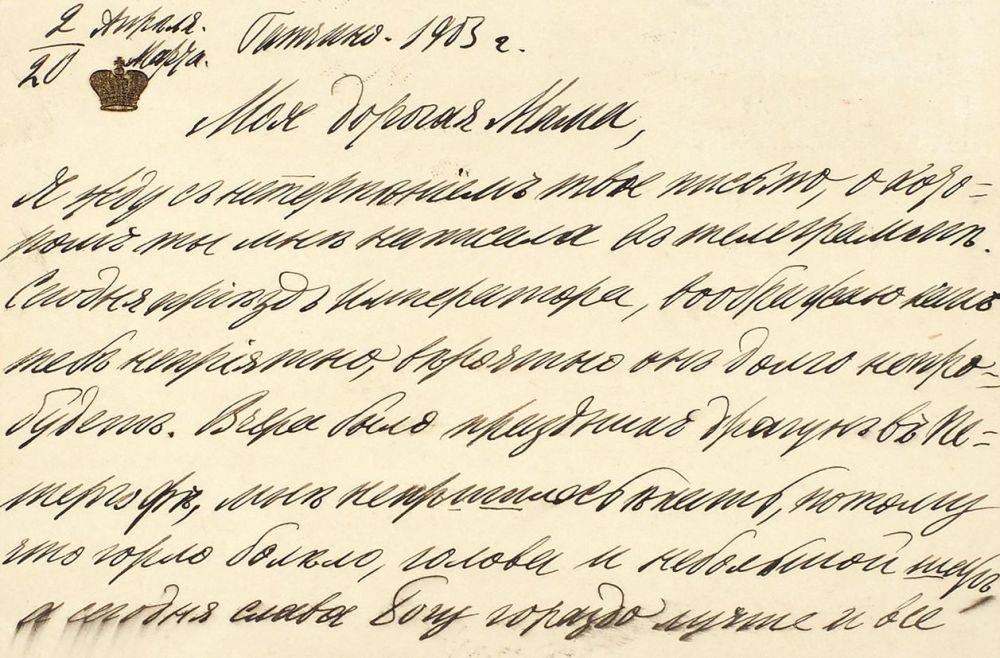 2 Апрѣля.
20 Марта. Гатчино. 1903 г.
Моя дорогая Мама,
Я жду съ нетерпѣніемъ твое письмо, о кото=
ромъ ты мнѣ написала въ телеграммѣ.
Сегодня пріѣздъ Императора, воображаю какъ
тебѣ непріятно, вѣроятно онъ долго непро=
будетъ. Вчера было праздникъ драгунъ въ Пе=
тергофѣ, мнѣ непришлось ѣхать, потому
что горло болѣло, голова и небольшой жаръ,
а сегодня слава Богу гораздо лучше и все